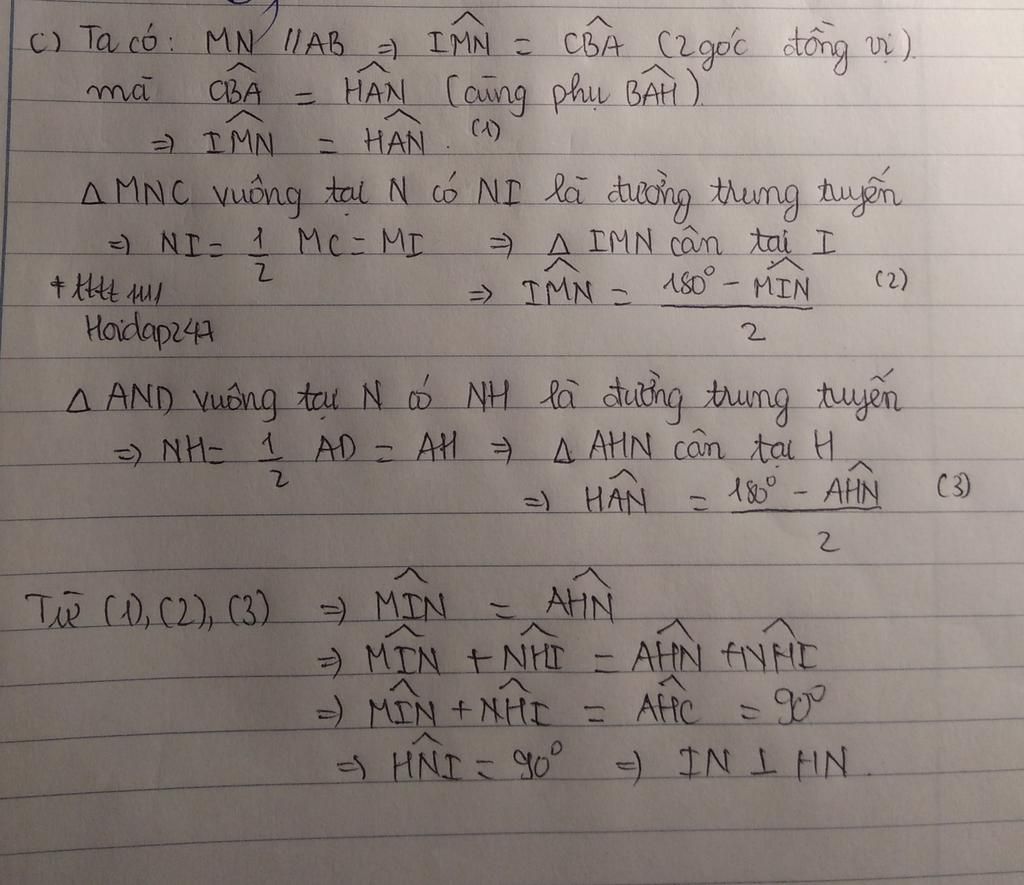 c) Ta có: MN // AB ⇒ \widehat{IMN} = \widehat{CBA} (2 góc đồng vị).
mà \widehat{CBA} = \widehat{HAN} (cùng phụ \widehat{BAH}).
⇒ \widehat{IMN} = \widehat{HAN}. (1)
Δ MNC vuông tại N có NI là đường trung tuyến
⇒ NI = \frac{1}{2} MC = MI ⇒ Δ IMN cân tại I
⇒ \widehat{IMN} = \frac{180° - \widehat{MIN}}{2} (2)
Hoidap247
Δ AND vuông tại N có NH là đường trung tuyến
⇒ NH = \frac{1}{2} AD = AH ⇒ Δ AHN cân tại H
⇒ \widehat{HAN} = \frac{180° - \widehat{AHN}}{2} (3)
Từ (1), (2), (3) ⇒ \widehat{MIN} = \widehat{AHN}
⇒ \widehat{MIN} + \widehat{NHI} = \widehat{AHN} + \widehat{NHI}
⇒ \widehat{MIN} + \widehat{NHI} = \widehat{AHC} = 90°
⇒ \widehat{HNI} = 90° ⇒ IN ⊥ HN.